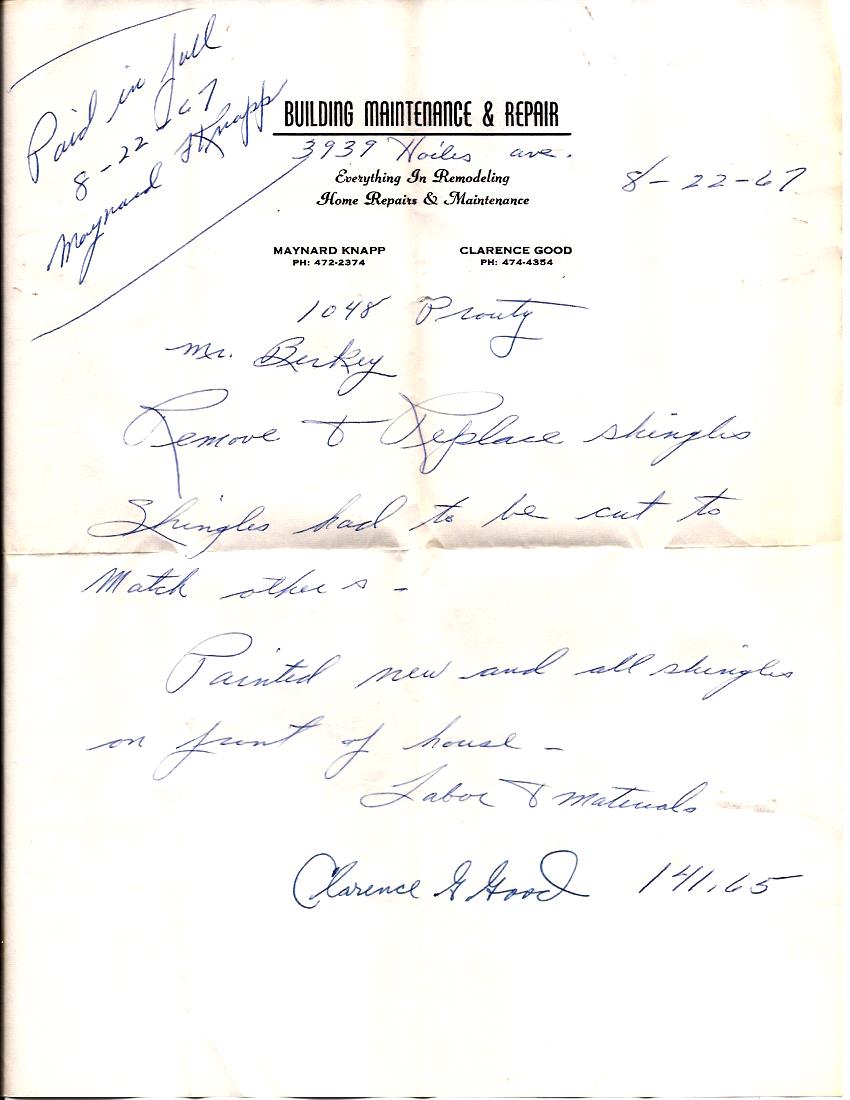 Paid in full
8-22-67
Maynard Knapp
BUILDING MAINTENANCE & REPAIR
3939 Hoiles ave.
8-22-67
Everything In Remodeling
Home Repairs & Maintenance
MAYNARD KNAPP CLARENCE GOOD
PH: 472-2374 PH: 474-4354
1048 Prouty
Mr. Berkey
Remove & Replace shingles
Shingles had to be cut to
Match others -
Painted new and all shingles
on front of house -
Labor & materials
Clarence G Good 141.65